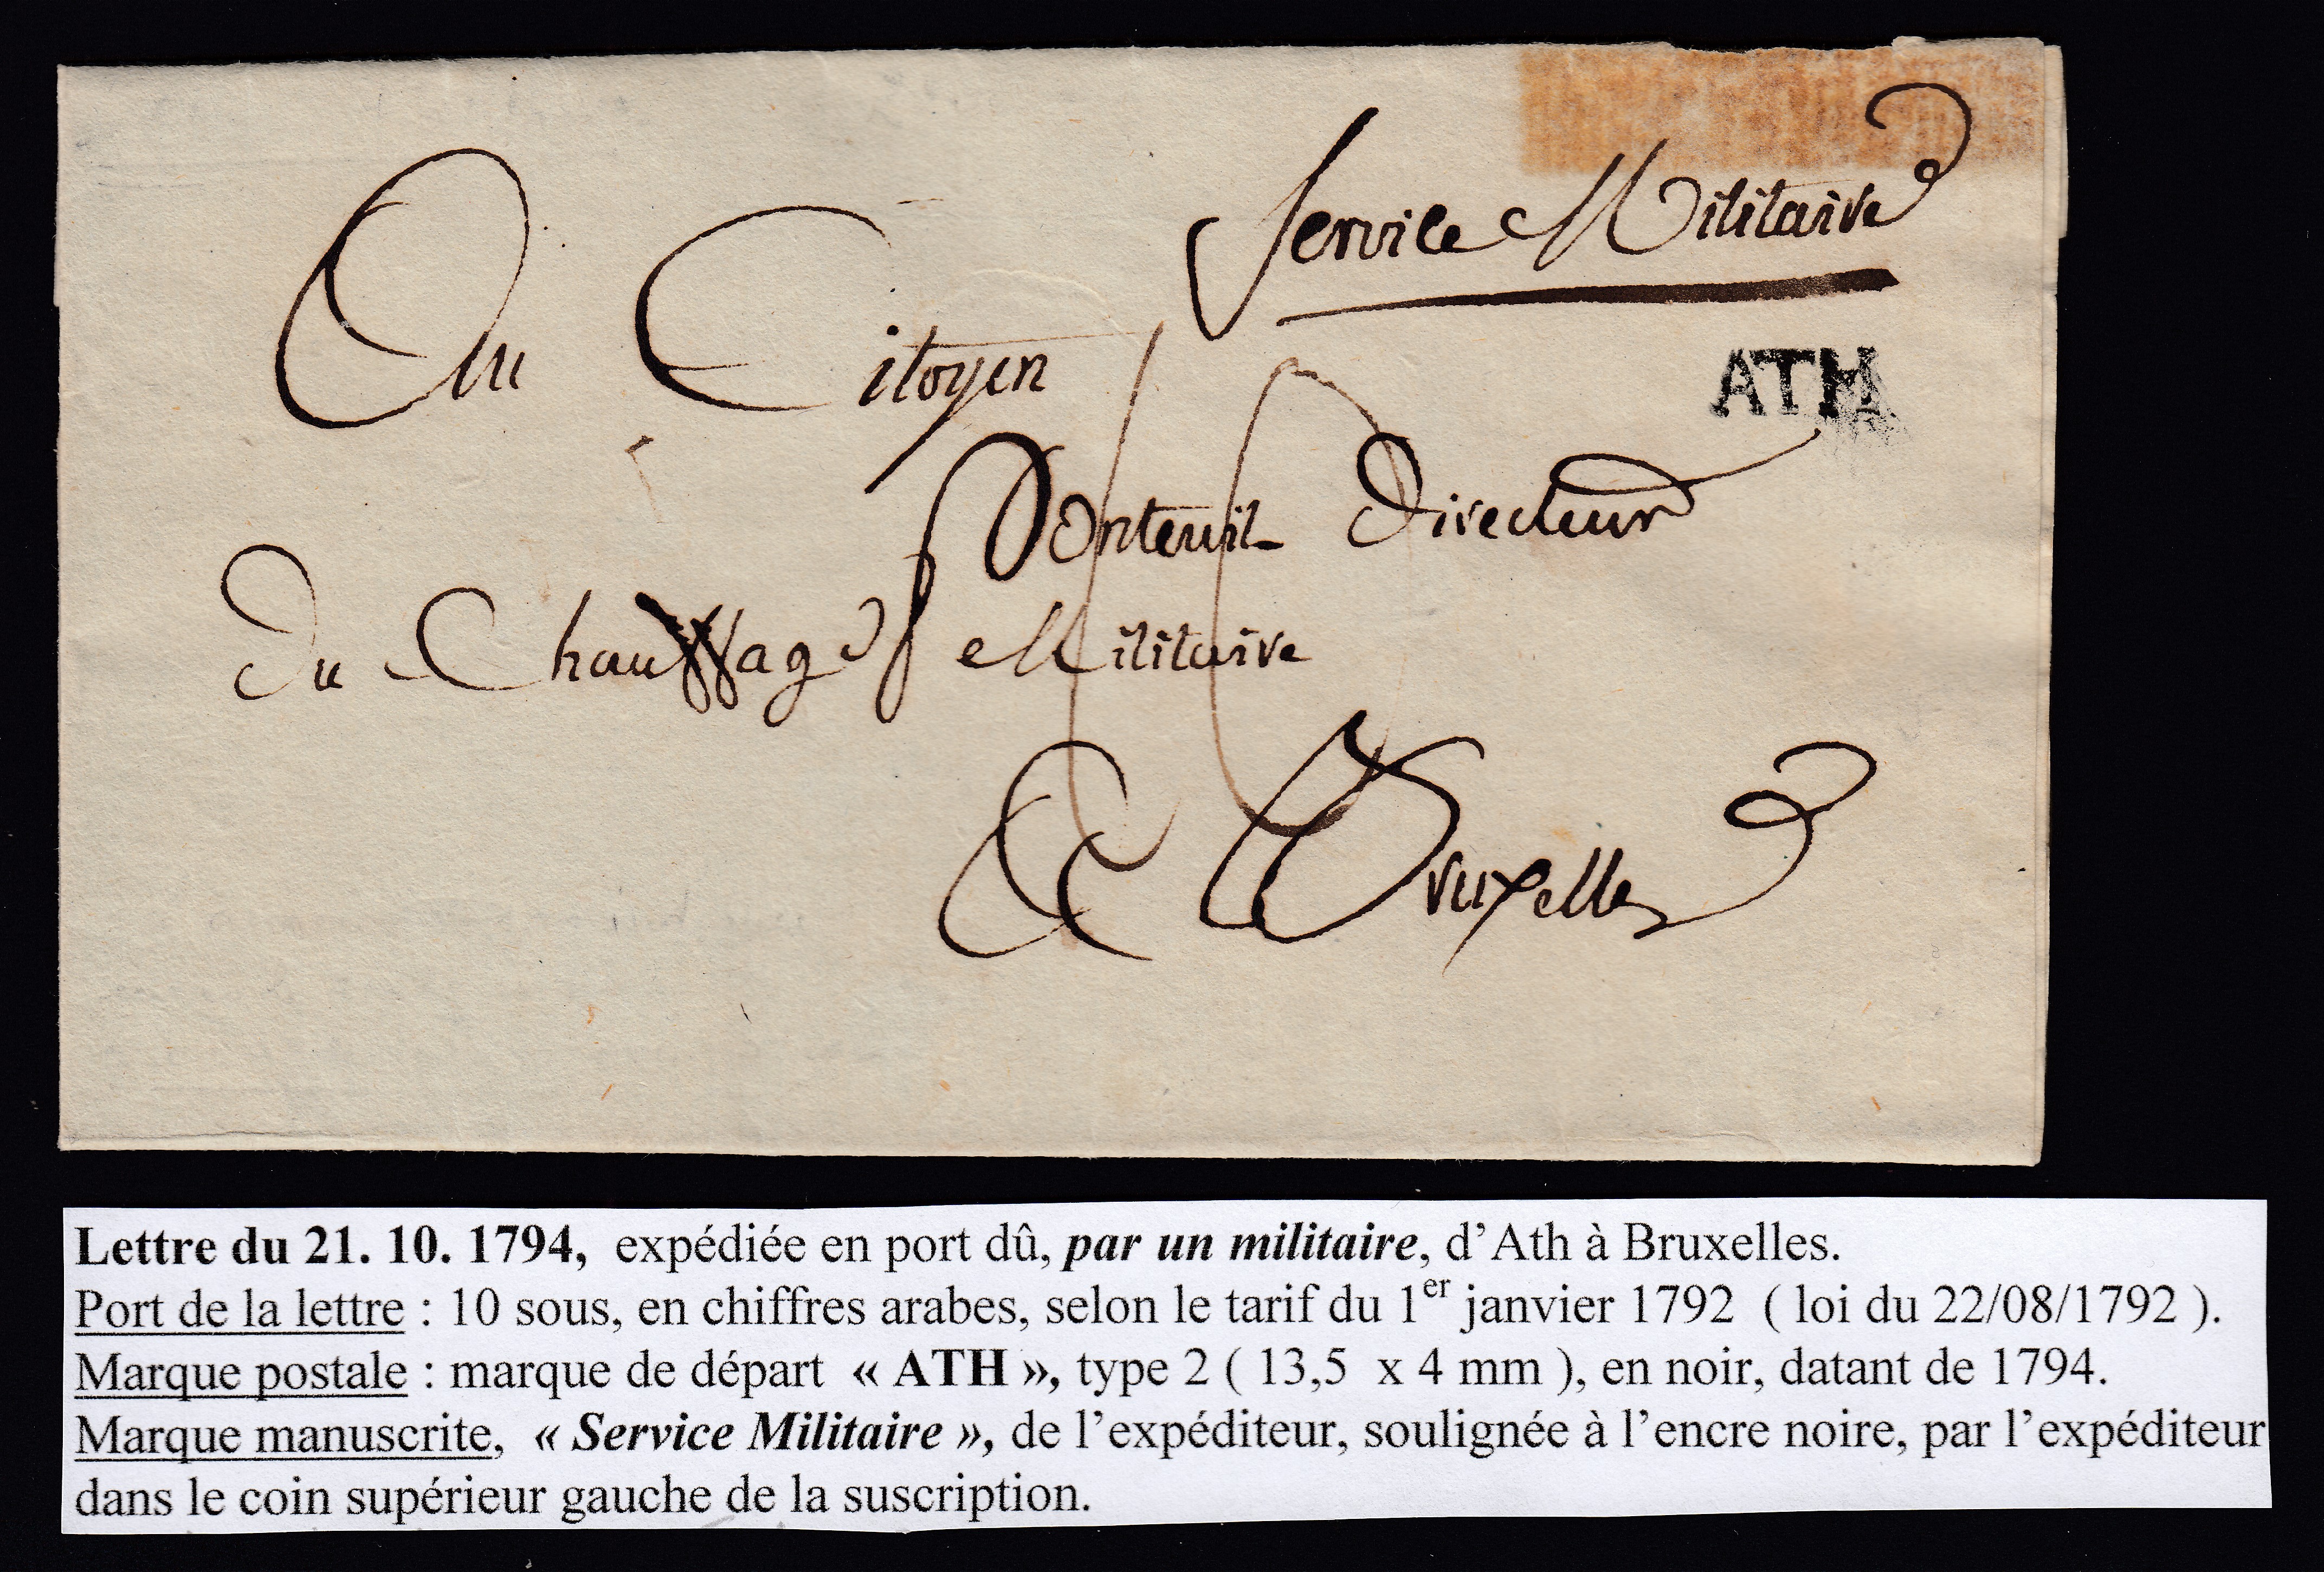 Service Militaire
Au Citoyen
ATH
Donteuil Directeur
du Chauffage Militaire
10
A Bruxelles
Lettre du 21. 10. 1794, expédiée en port dû, par un militaire, d’Ath à Bruxelles.
Port de la lettre : 10 sous, en chiffres arabes, selon le tarif du 1er janvier 1792 ( loi du 22/08/1792 ).
Marque postale : marque de départ « ATH », type 2 ( 13,5 x 4 mm ), en noir, datant de 1794.
Marque manuscrite, « Service Militaire », de l’expéditeur, soulignée à l’encre noire, par l’expéditeur
dans le coin supérieur gauche de la suscription.